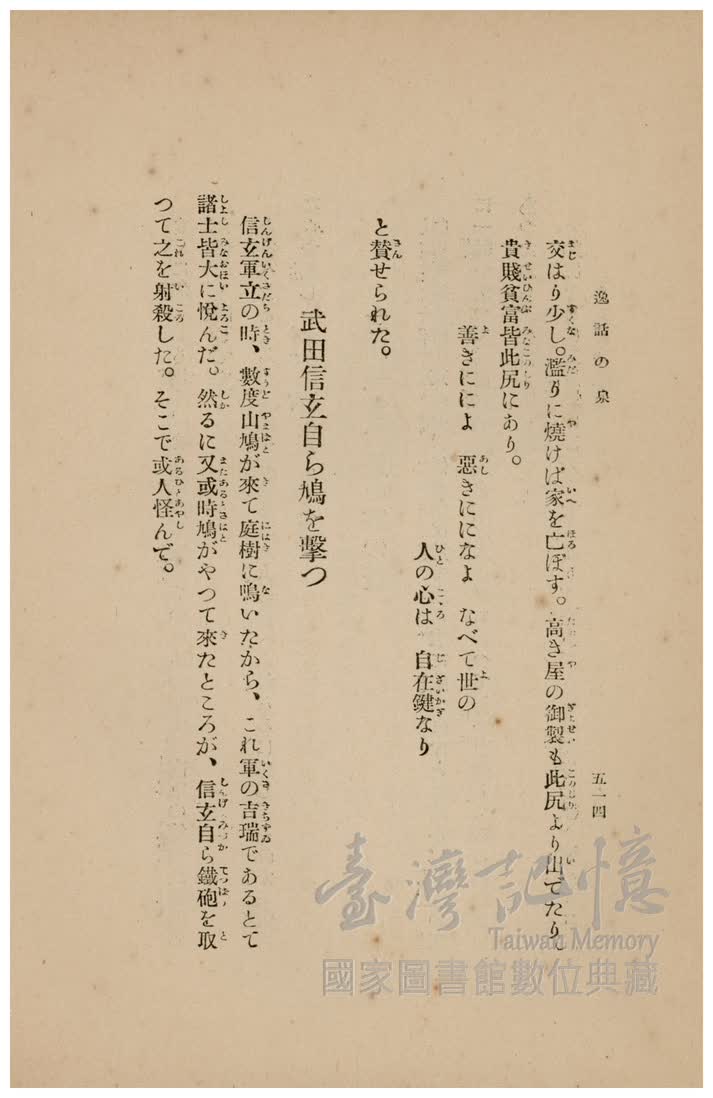 逸話の泉
五一四
交はり少し。濫りに燒けば家を亡ぼす。高き屋の御製も此尻より出でたり。
貴賤貧富皆此尻にあり。
善きにによ　惡きにになよ　なべて世の
人の心は　自在鍵なり
と賛せられた。
武田信玄自ら鳩を擊つ
信玄軍立の時、數度山鳩が來て庭樹に鳴いたから、これ軍の吉瑞であるとて
諸士皆大に悅んだ。然るに又或時鳩がやつて來たところが、信玄自ら鐵砲を取
つて之を射殺した。そこで或人怪んで。
臺灣記憶
Taiwan Memory
國家圖書館數位典藏